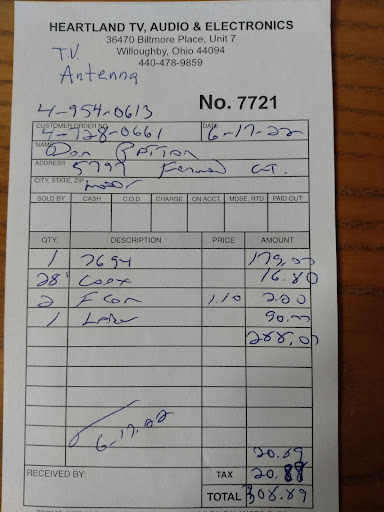 HEARTLAND TV, AUDIO & ELECTRONICS
36470 Biltmore Place, Unit 7
Willoughby, Ohio 44094
440-478-9859
T.V.
Antenna
4-954-0613
No. 7721
CUSTOMER ORDER NO. DATE
4-728-0661 6-17-22
NAME Don
ADDRESS 5797 Ct.
CITY, STATE, ZIP
SOLD BY CASH C.O.D. CHARGE ON ACCT. MDSE. RTD PAID OUT
QTY. DESCRIPTION PRICE AMOUNT
1 7694 179.00
28' Coax 16.80
2 F Con 1.10 2.20
1 Labor 90.00
288.00
6-17-22
20.89
RECEIVED BY: TAX 20.89
TOTAL 308.89